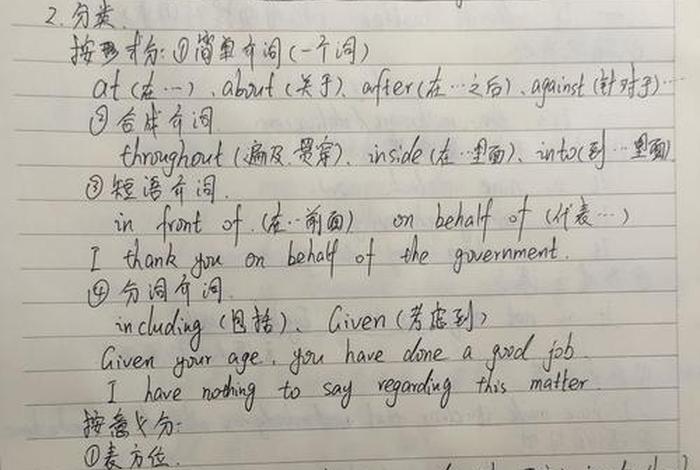 2.分类.
按形式分:①简单介词(一个词)
at(在…)、about(关于)、after(在…之后)、against(针对于)…
②合成介词
throughout(遍及.贯穿)、inside(在…里面)、into(到…里面)
③短语介词.
in front of.(在…前面) on behalf of (代表…)
I thank you on behalf of the government.
④分词介词.
including (包括)、Given(考虑到)
Given your age, you have done a good job.
I have nothing to say regarding this matter.
按意义分:
①表方位.